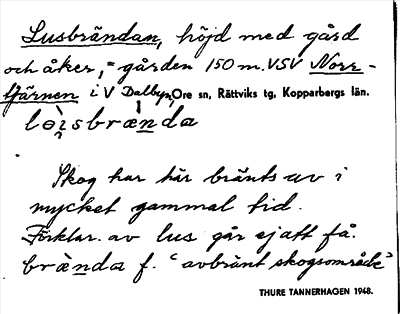 Lusbrändan, höjd med gård
och åker, = gården 150 m. VSV Norr-
tjärnen i V Dalbyn, Ore sn, Rättviks tg, Kopparbergs län.
lo̤ìsbrænda
Skog har här bränts av i
mycket gammal tid.
Förklar. av lus går ej att få.
brænda f. "avbränt skogsområde"
THURE TANNERHAGEN 1948.